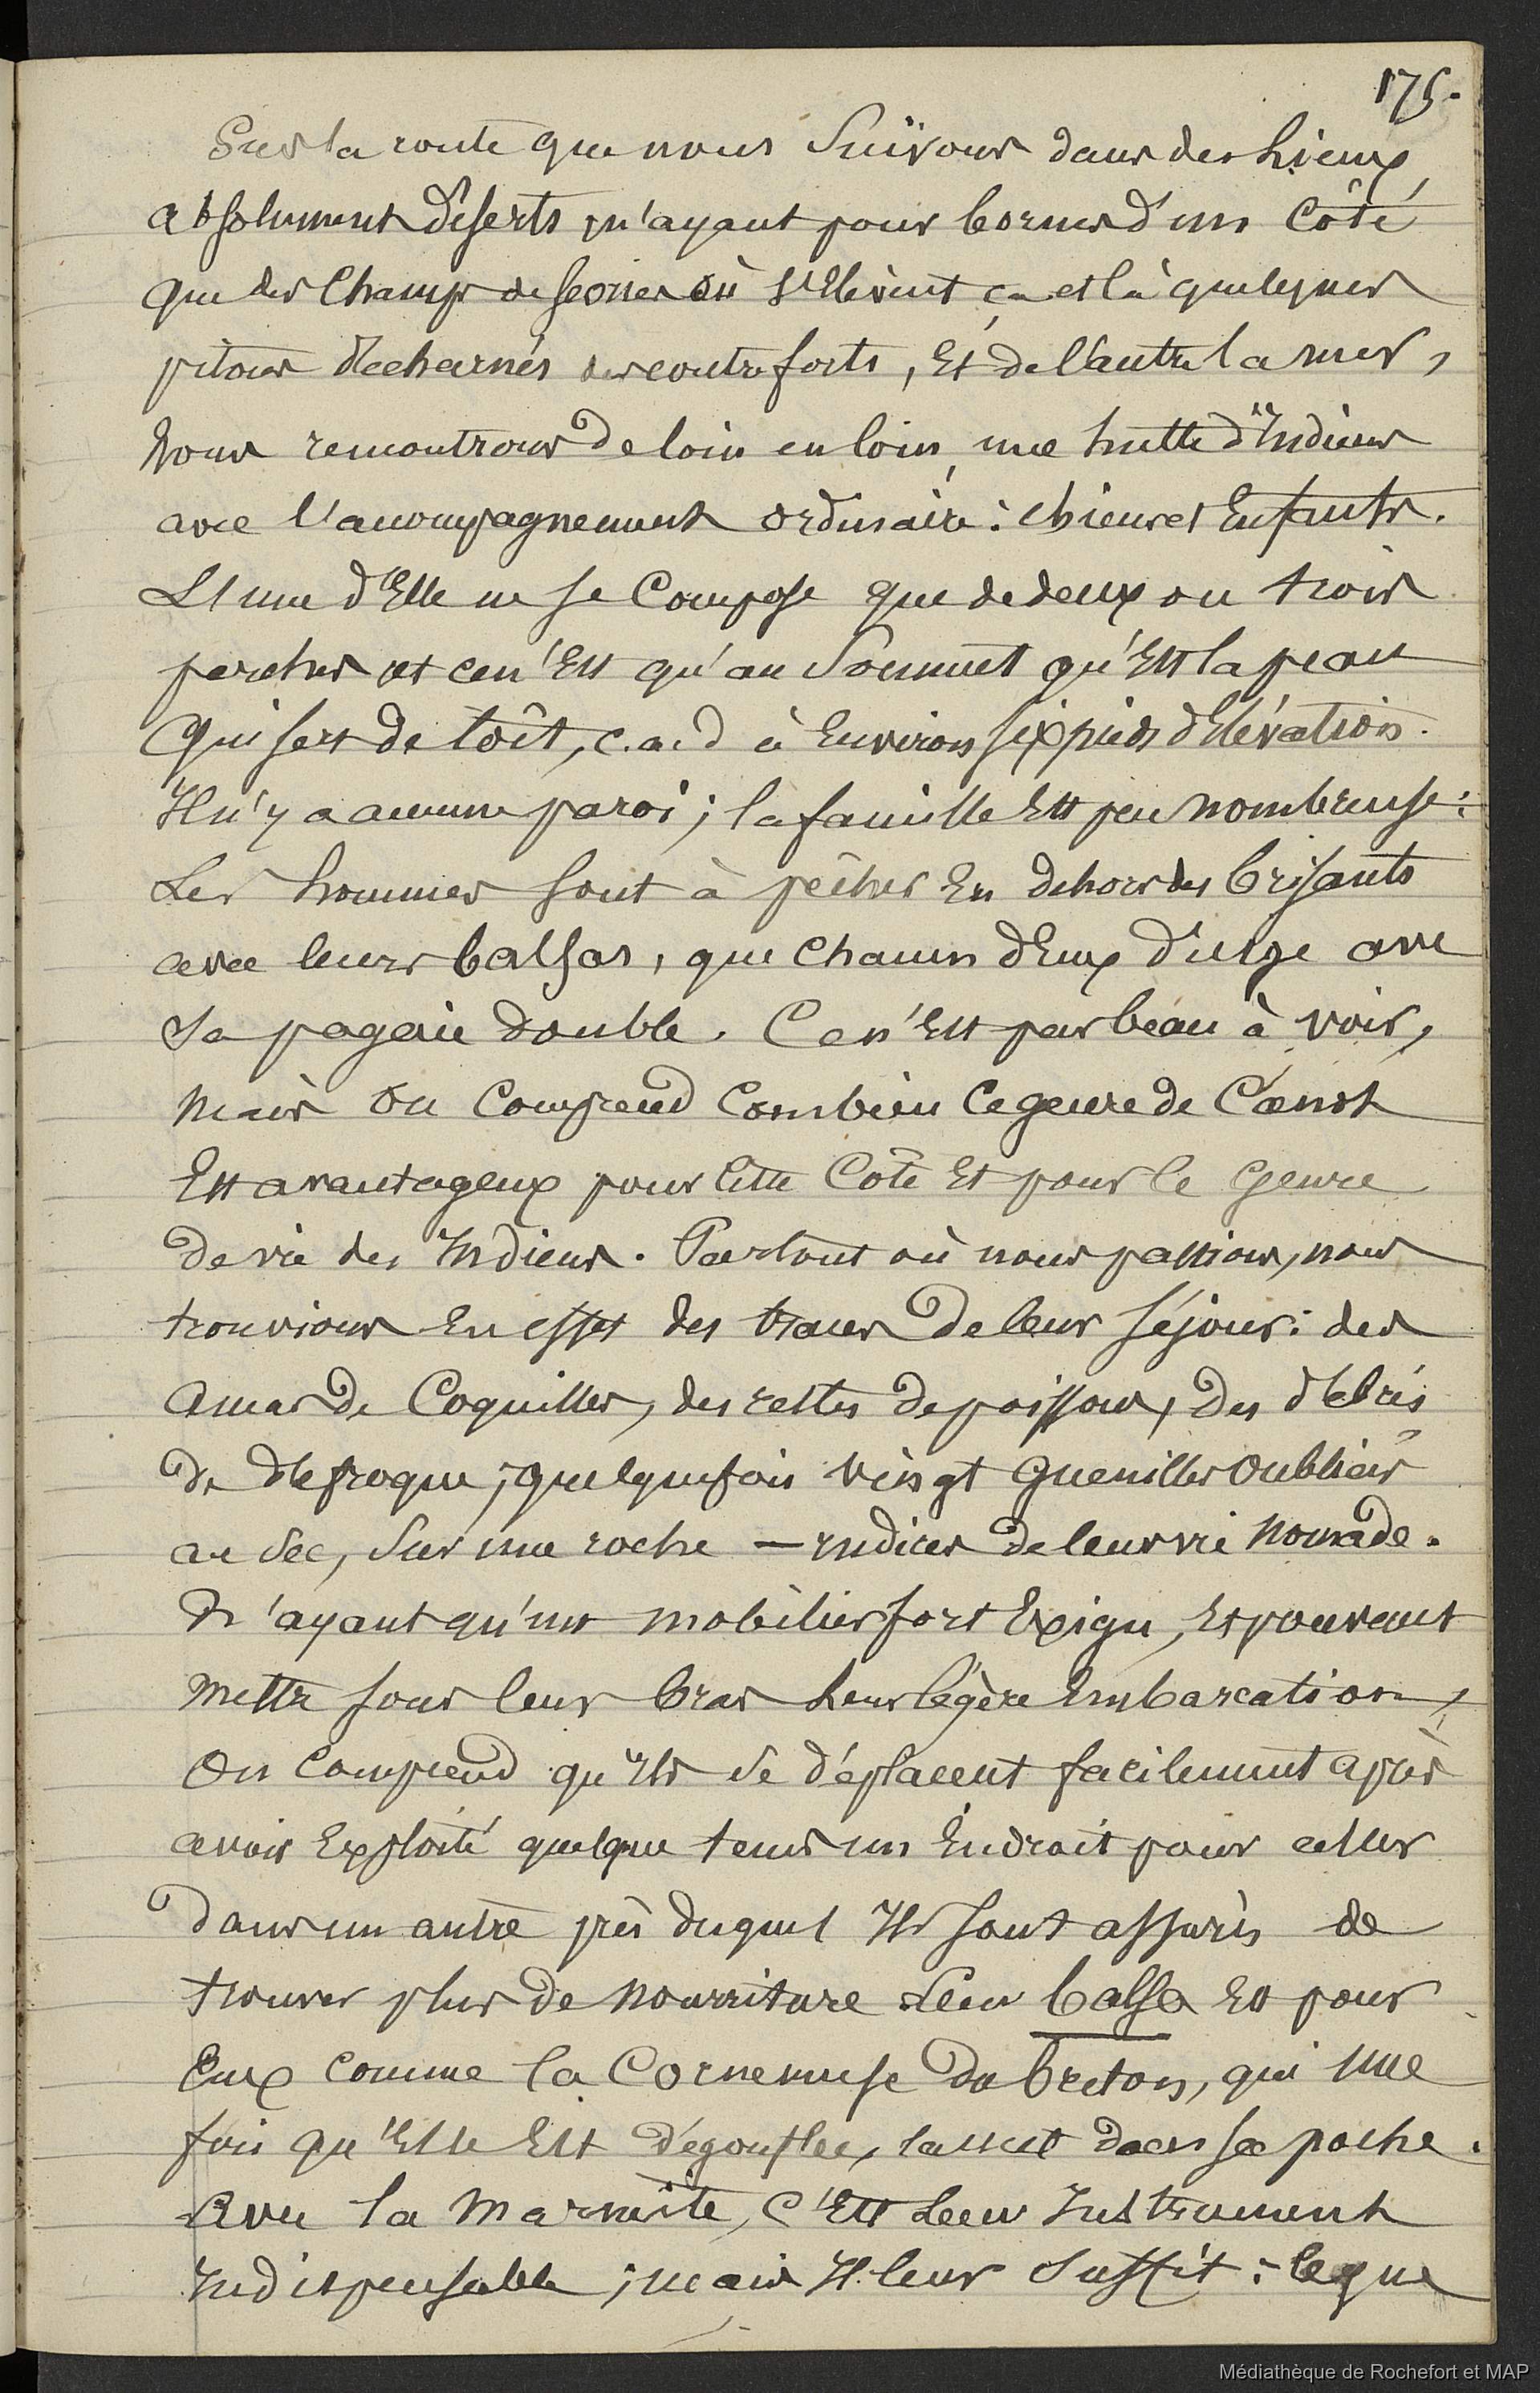 175.
Sur la route que nous Suivons dans des Lieux
absolument déserts, n'ayant pour bornes d'un Côté
que des Champs de scories où s'Elèvent ça et là quelques
pitons décharnés des contreforts, Et de l'autre la mer,
nous rencontrons de loin en loin, une hutte d'Indiens
avec l'accompagnement ordinaire : chiens et Enfants.
L'une d'Elle ne se Compose que de deux ou trois
perches et ce n'Est qu'au Sommet qu'Est la peau
qui sert de toît, c.a.d à Environ six pieds d'Elévation.
Il n'y a aucune paroi ; la famille Est peu nombreuse :
Les hommes sont à pêcher En dehors des brisants
avec leurs balsas, que chacun d'Eux dirige avec
sa pagaie double. Ce n'Est pas beau à voir,
mais on Comprend Combien Ce genre de Canot
Est avantageux pour Cette Côte Et pour le Genre
de vie des Indiens. Partout où nous passions, nous
trouvions En effet des traces de leur séjour : des
amas de Coquilles, des restes de poissons, Des débris
de défroque ; quelquefois vingt Guenilles oubliées
au sec, sur une roche — Indices de leur vie nomade.
N'ayant qu'un mobilier fort Exigu, Et pouvant
mettre sous leur bras Leur légère Embarcation,
On Comprend qu'Ils se déplacent facilement après
avoir Exploité quelque tems un Endroit pour aller
dans un autre près duquel Ils sont assurés de
trouver plus de nourriture. Leur balsa Est pour
Eux comme la Cornemuse du breton, qui une
fois qu'Elle Est dégonflée, la met dans sa poche.
Avec la Marmite, C'Est Leur Instrument
Indispensable ; mais Il leur Suffit : ce que
Médiathèque de Rochefort et MAP